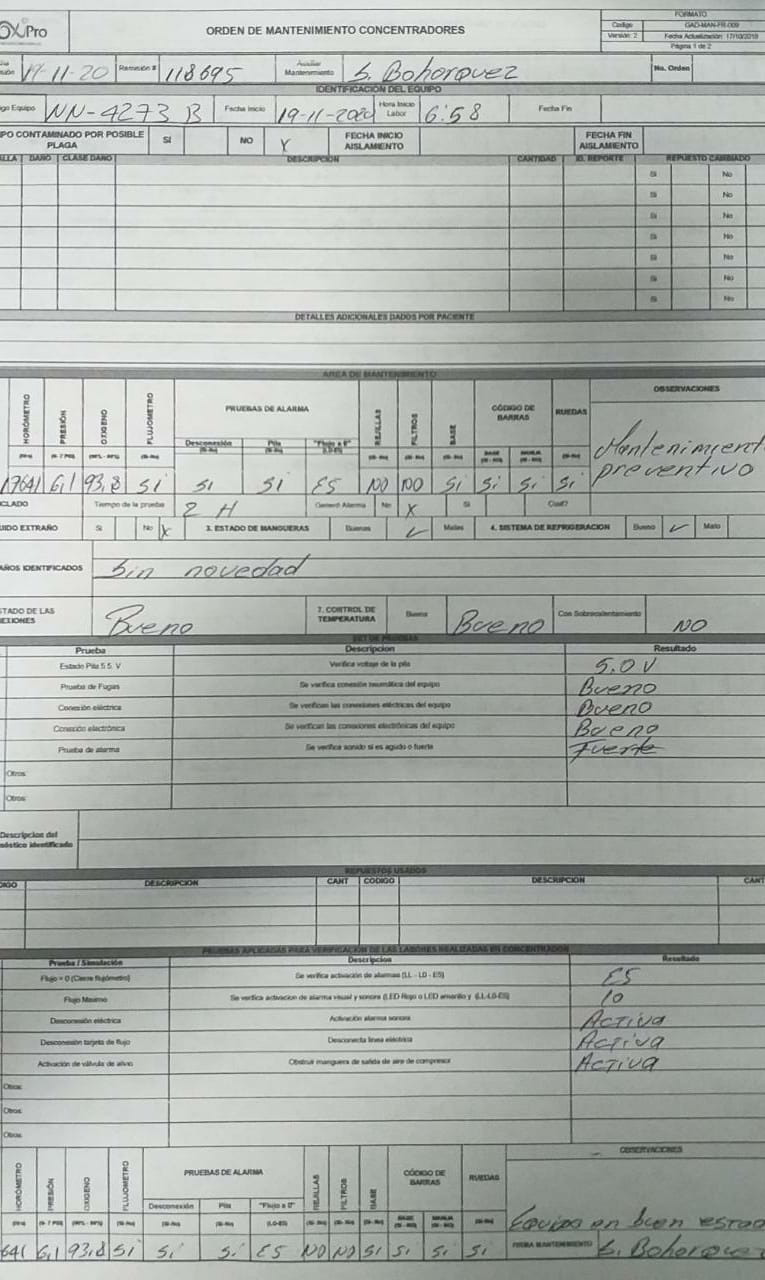 OxPro
ORDEN DE MANTENIMIENTO CONCENTRADORES
FORMATO
Codigo GAD-MAN-FR-009
Versión: 2 Fecha Actualización: 17/10/2019
Página 1 de 2
19-11-20 Remisión # 118695 Auxiliar Mantenimiento S. Bohorquez No. Orden
IDENTIFICACIÓN DEL EQUIPO
go Equipo NN-4273 B Fecha Inicio 19-11-2020 Hora Inicio Labor 6:58 Fecha Fin
PO CONTAMINADO POR POSIBLE PLAGA SI NO X FECHA INICIO AISLAMIENTO FECHA FIN AISLAMIENTO
ALLA DAÑO CLASE DAÑO DESCRIPCIÓN CANTIDAD ID. REPORTE REPUESTO CAMBIADO
Si No
Si No
Si No
Si No
Si No
Si No
Si No
DETALLES ADICIONALES DADOS POR PACIENTE
AREA DE MANTENIMIENTO
HORÓMETRO PRESIÓN OXIGENO FLUJOMETRO PRUEBAS DE ALARMA REJILLAS FILTROS BASE CÓDIGO DE BARRAS RUEDAS OBSERVACIONES
Desconexión Pila "Flujo a 0"
Mantenimient
preventivo
19641 6,1 93,8 Si Si Si ES NO NO Si Si Si Si
CLADO Tiempo de la prueba 2 H Generó Alarma No X Si Cual?
UIDO EXTRAÑO Si No X 3. ESTADO DE MANGUERAS Buenas ✓ Malas 4. SISTEMA DE REFRIGERACION Bueno ✓ Malo
AÑOS IDENTIFICADOS Sin novedad
STADO DE LAS EXIONES Bueno 7. CONTROL DE TEMPERATURA Buena Bueno Con Sobrecalentamiento NO
SET DE PRUEBAS
Prueba Descripcion Resultado
Estado Pila 5.5 V Verifica voltaje de la pila 5.0 V
Prueba de Fugas Se verifica conexión neumática del equipo Bueno
Conexión eléctrica Se verifican las conexiones eléctricas del equipo Bueno
Conexión electrónica Se verifican las conexiones electrónicas del equipo Bueno
Prueba de alarma Se verifica sonido si es agudo o fuerte Fuerte
Otros:
Otros:
Descripcion del
nóstico identificado
REPUESTOS USADOS
DIGO DESCRIPCION CANT CODIGO DESCRIPCION CANT
PRUEBAS APLICADAS PARA VERIFICACIÓN DE LAS LABORES REALIZADAS EN CONCENTRADOR
Prueba / Simulación Descripcion Resultado
Flujo = 0 (Cierre flujómetro) Se verifica activación de alarmas (LL - LO - ES) ES
Flujo Máximo Se verifica activacion de alarma visual y sonora (LED Rojo o LED amarillo y (LL-LO-ES) 10
Desconexión eléctrica Activación alarma sonora Activa
Desconexión tarjeta de flujo Desconecta línea eléctrica Activa
Activación de válvula de alivio Obstruir manguera de salida de aire de compresor Activa
Otros:
Otros:
Otros:
HORÓMETRO PRESIÓN OXIGENO FLUJOMETRO PRUEBAS DE ALARMA REJILLAS FILTROS BASE CÓDIGO DE BARRAS RUEDAS OBSERVACIONES
Desconexión Pila "Flujo a 0"
Equipo en buen estad
641 6,1 93,8 Si Si Si ES NO NO Si Si Si Si FIRMA MANTENIMIENTO S. Bohorquez